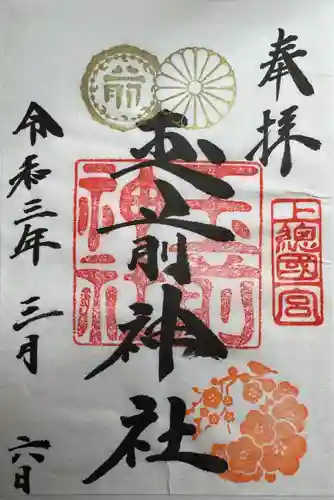 奉拝
上總國一宮
前
玉前神社
玉前神社
令和三年 三月 六日